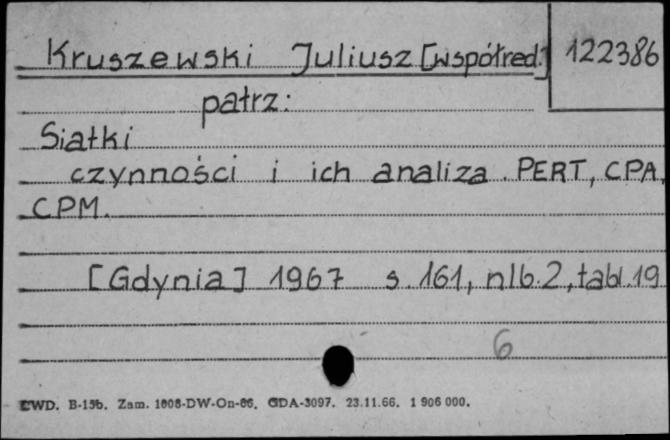 Kruszewski Juliusz [współred.] 122386
patrz:
Siatki
czynności i ich analiza. PERT, CPA,
CPM.
[Gdynia] 1967 s. 161, nlb. 2, tabl. 19
6
CWD. B-15b. Zam. 1808-DW-On-66. GDA-3097. 23.11.66. 1 906 000.